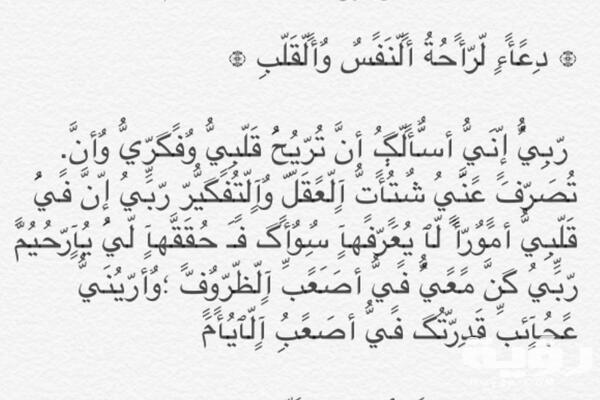 ۞ دِعًٌأٌءٍ لّرّأٌحًةُ أٌلّنَفًسٌ وٌأٌلّقَلّبِ ۞
رّبِيٌُ إنّيَُ أسٌُأٌلّگٍُ أنَّ تُرّيٌحُ قَلّبِيٌُ وٌفًگرّيٌُ وٌأنَّ.
تُصَرّفَ عًنَّيٌُ شُتُأٌتٌُ آلّعًقَلّ وٌآلّتُفًگيٌرّ رّبِّيٌُ إنَّ فًيٌُ
قَلّبِيٌُ أمًوٌرّأٌ لّآ يٌعًرّفًهآ سٌوٌأٌگ فًـ حُقَقَّهآ لّيٌُ يٌآرّحُيٌمً
رّبِّيٌُ گنَّ مًعًيٌُ فًيٌُ أصَعًبِّ آلّظّرّوٌفًّ ؛وٌأرّيٌنَيٌُ
عًجٌآئبِّ قَدِرّتٌگ فًيٌُ أصَعًبِ آلّآيٌأٌمً
رؤية